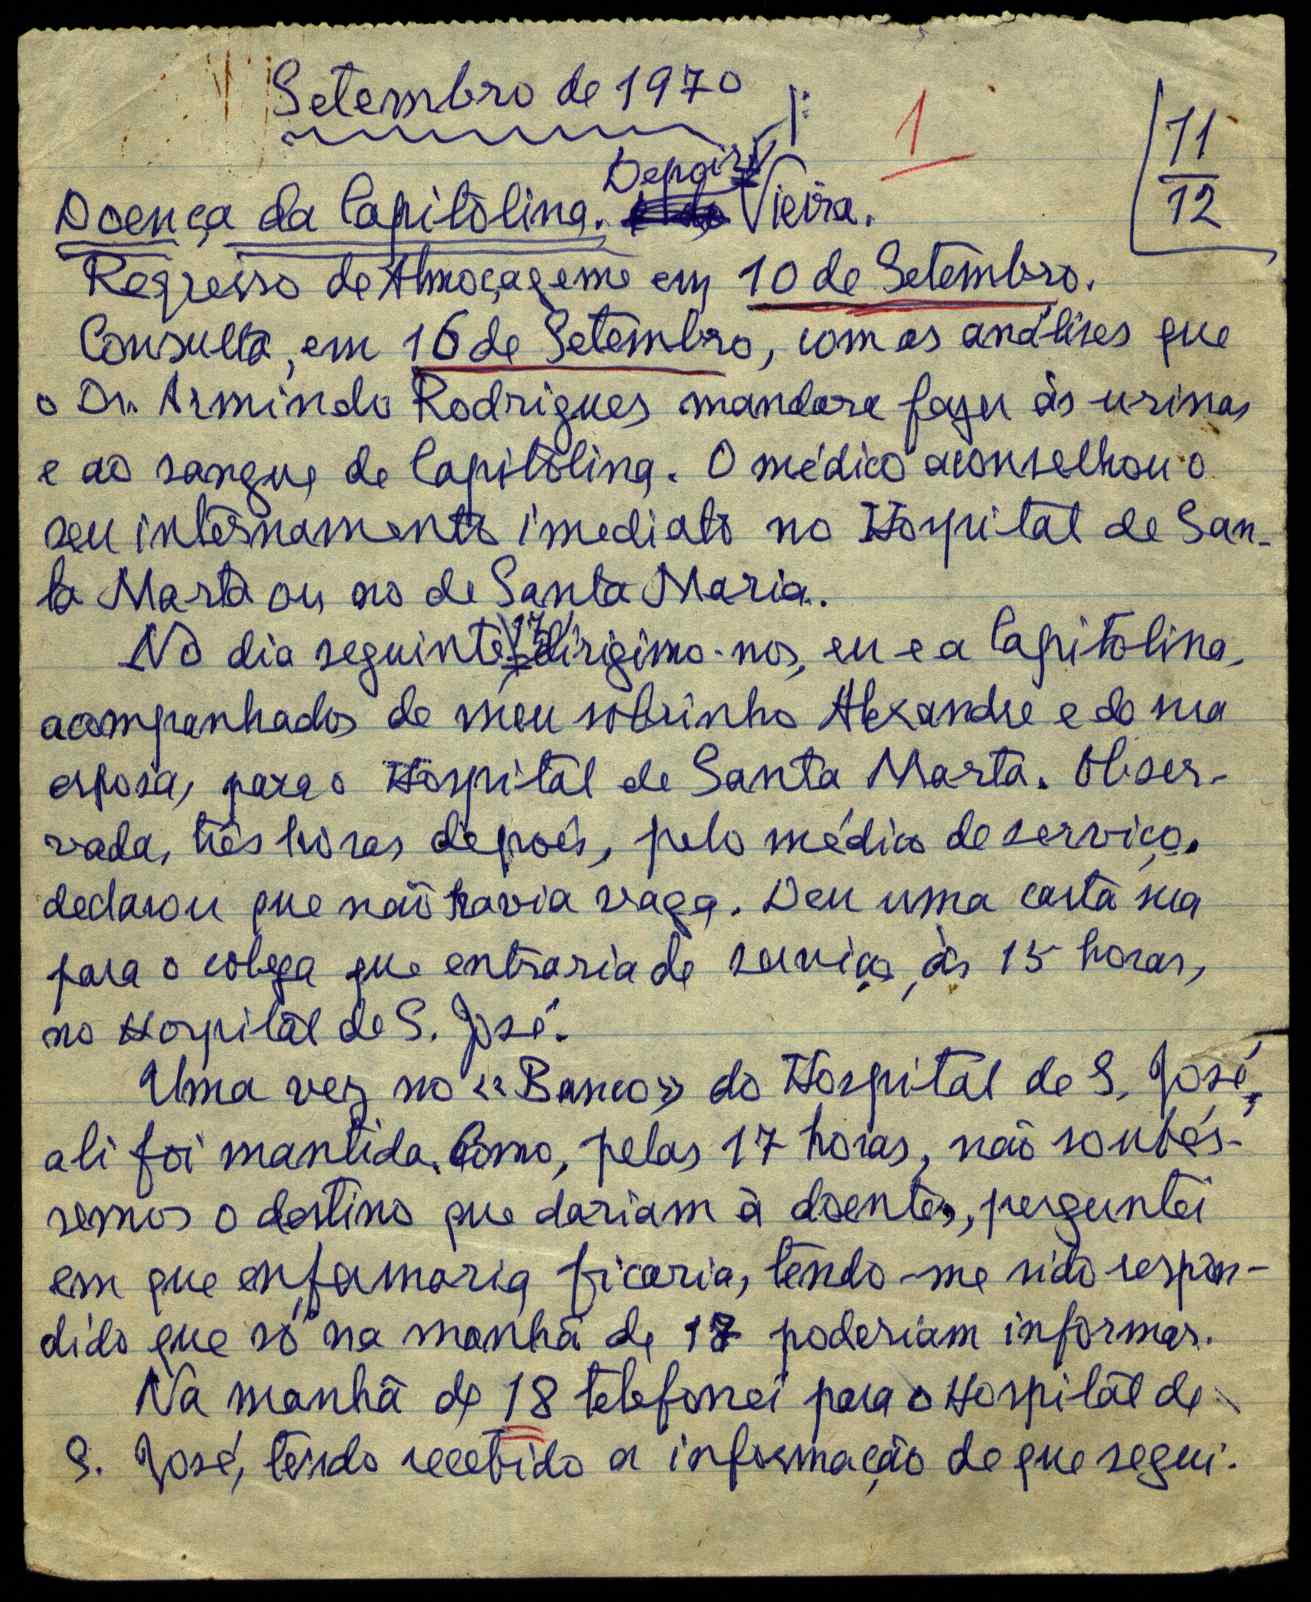 Setembro de 1970
1
11
12
Depois
Doença da Capitolina. Vieira.
Regresso de Almoçageme em 10 de Setembro.
Consulta, em 16 de Setembro, com as análises que
o Dr. Armindo Rodrigues mandara fazer às urinas
e ao sangue de Capitolina. O médico aconselhou o
seu internamento imediato no Hospital de San-
ta Marta ou no de Santa Maria.
No dia seguinte, 17, dirigimo-nos, eu e a Capitolina,
acompanhados de meu sobrinho Alexandre e da sua
esposa, para o Hospital de Santa Marta. Obser-
vada, três horas depois, pelo médico de serviço,
declarou que não havia vaga. Deu uma carta sua
para o colega que entraria de serviço, às 15 horas,
no Hospital de S. José.
Uma vez no «Banco» do Hospital de S. José,
ali foi mantida. Como, pelas 17 horas, não soubés-
semos o destino que dariam à doente, perguntei
em que enfermaria ficaria, tendo-me sido respon-
dido que só na manhã de 18 poderiam informar.
Na manhã de 18 telefonei para o Hospital de
S. José, tendo recebido a informação de que segui-